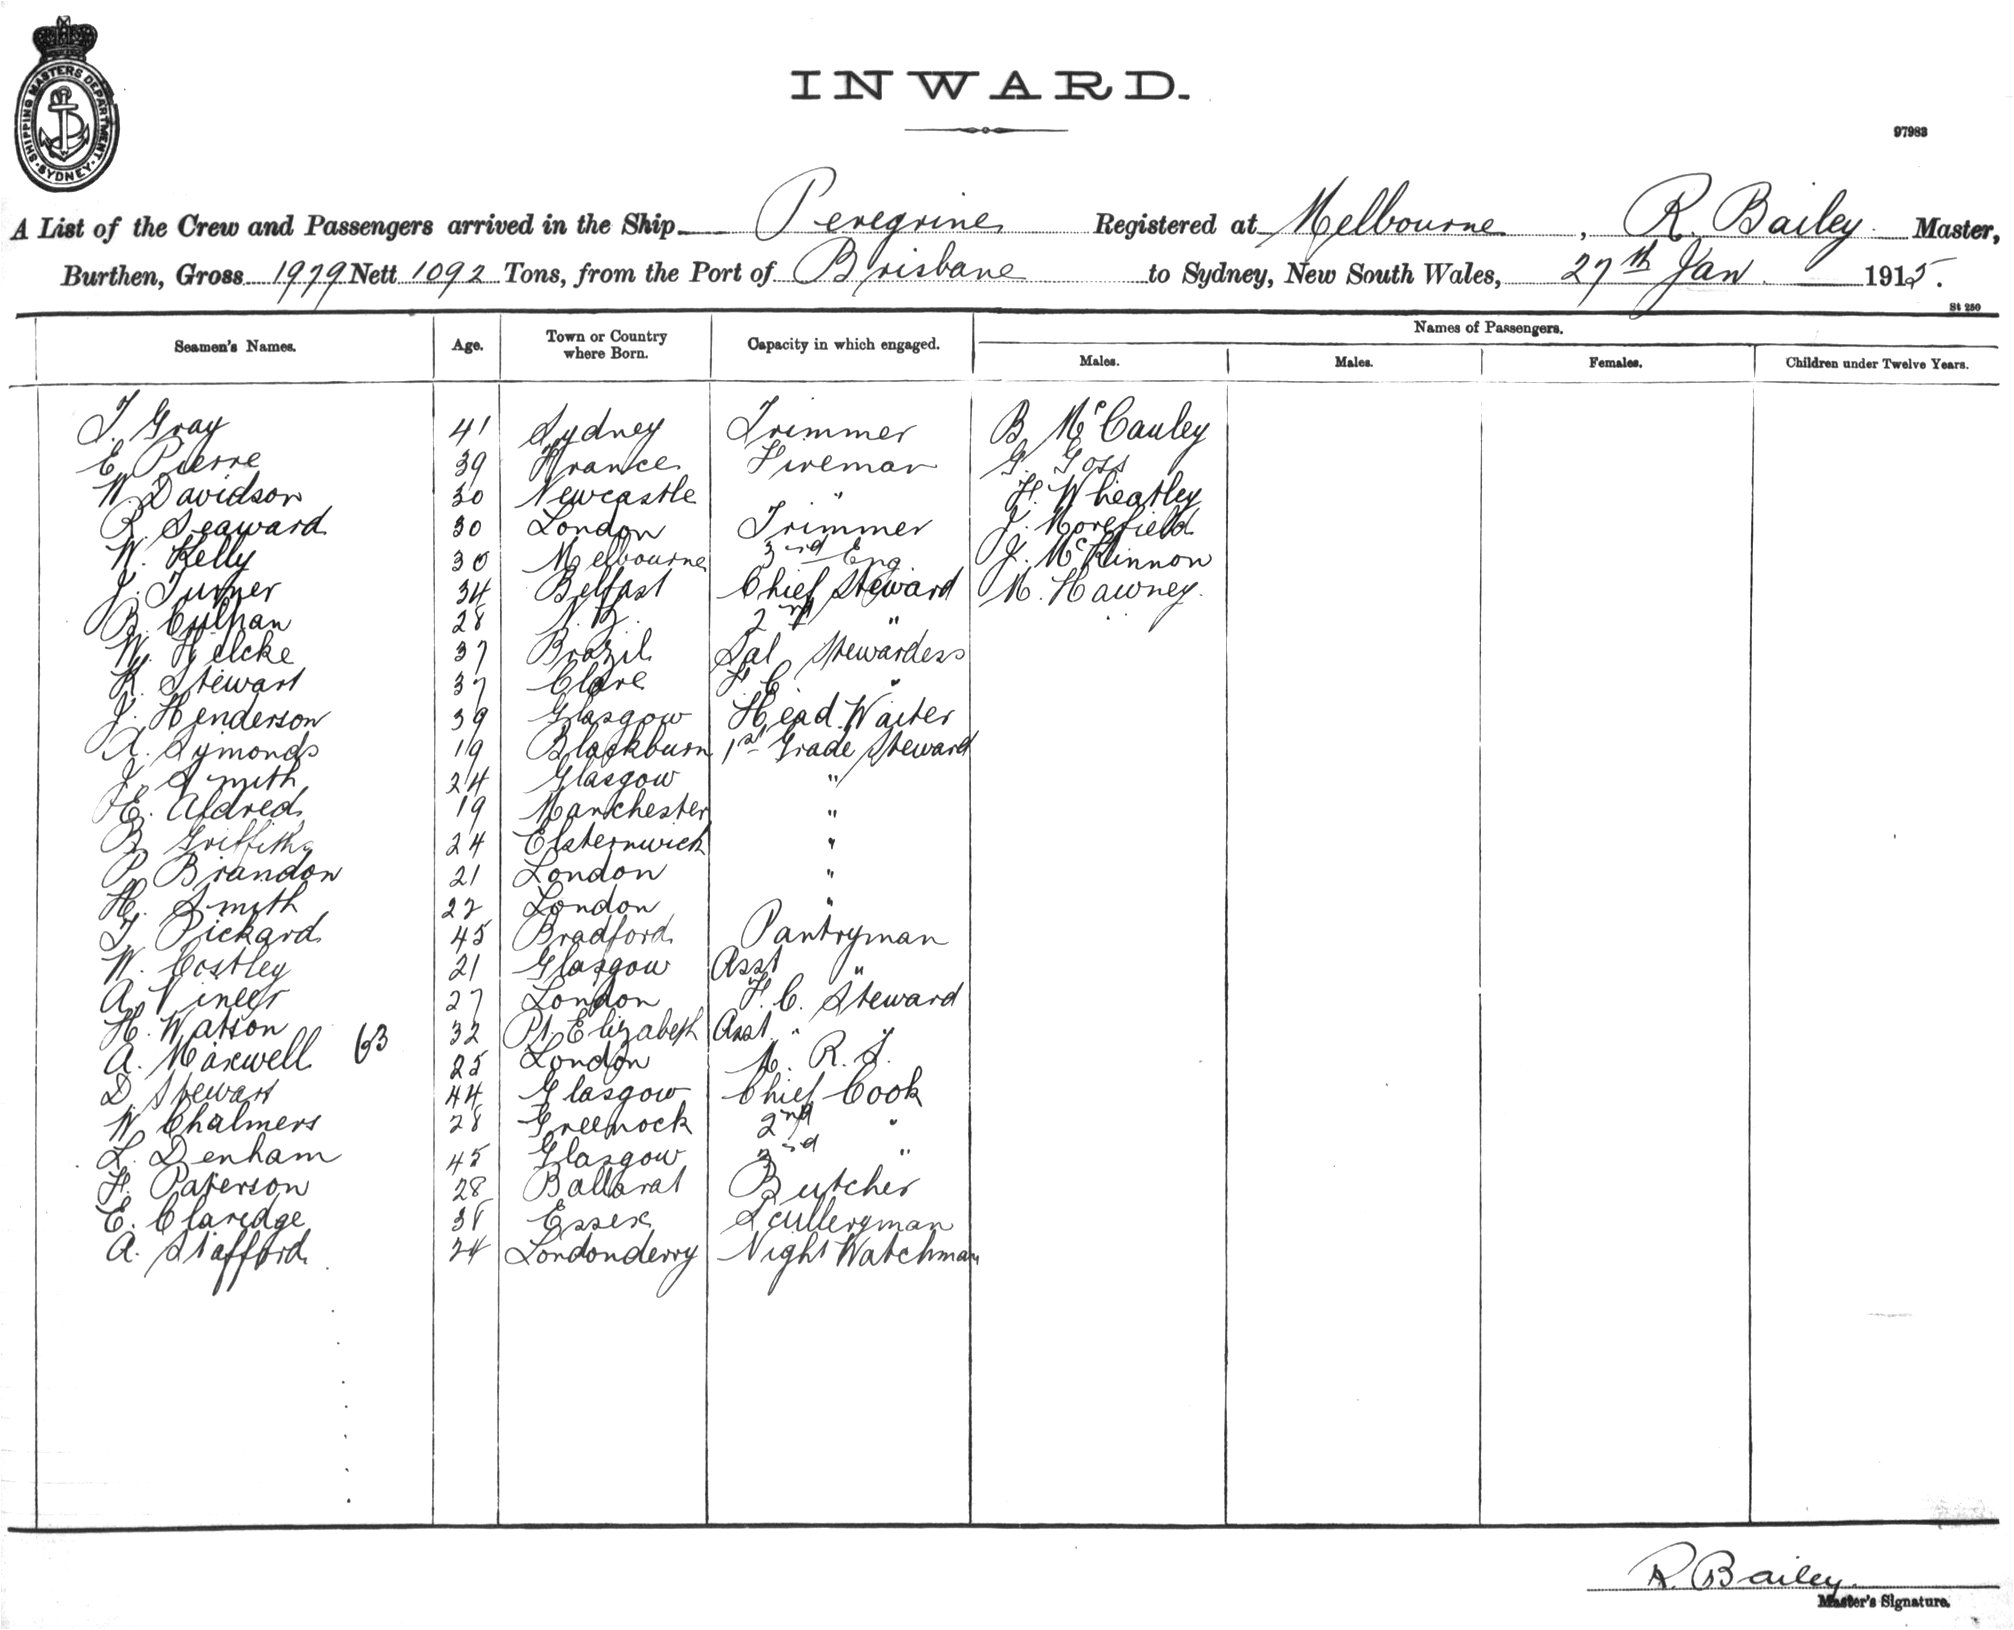 SHIPPING MASTERS DEPARTMENT. SYDNEY.
INWARD.
97983
A List of the Crew and Passengers arrived in the Ship Peregrine Registered at Melbourne, R. Bailey Master,
Burthen, Gross 1979 Nett 1092 Tons, from the Port of Brisbane to Sydney, New South Wales, 27th Jan 1915.
St 250
Names of Passengers.
Seamen's Names. Age. Town or Country where Born. Capacity in which engaged. Males. Males. Females. Children under Twelve Years.
T. Gray 41 Sydney Trimmer B McCauley
E. Pierre 39 France Fireman G. Goss
W. Davidson 30 Newcastle " H. Wheatley
R. Seaward 30 London Trimmer J. Morefield
W. Kelly 30 Melbourne 3rd Eng J. McKinnon
J. Turner 34 Belfast Chief Steward M. Hawney.
B. Culhan 28 N.Z. 2nd "
W. Helcke 37 Brazil Sal Stewardess
K. Stewart 37 Clare F. C. "
J. Henderson 39 Glasgow Head Waiter
A. Symonds 19 Blackburn 1st Grade Steward
J. Smith 24 Glasgow "
E. Aldred 19 Manchester "
B Griffiths 24 Elsternwick "
P Brandon 21 London "
H. Smith 22 London "
T Pickard 45 Bradford Pantryman
W. Costley 21 Glasgow Asst "
A. Viner 27 London F. C. Steward
H. Watson 32 Pt. Elizabeth Asst " "
A. Maxwell 63 25 London M. R. S.
D. Stewart 44 Glasgow Chief Cook
W Chalmers 28 Greenock 2nd "
L. Denham 45 Glasgow 3rd "
H. Paterson 28 Ballarat Butcher
E. Claredge 38 Essex Scullergman
A. Stafford 24 Londonderry Night Watchman
R. Bailey
Master's Signature.